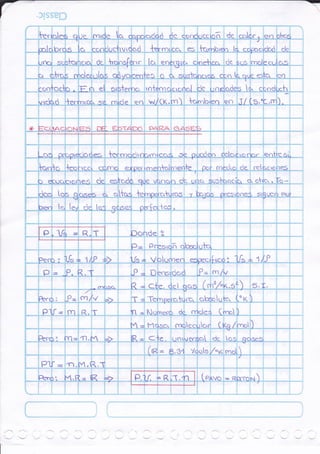 teriales que mide la capacidad de conducción de calor, en otras
palabras la conductividad térmica es también la capacidad de
una sustancia de transferir la energía cinética de sus moléculas
a otras moléculas adyacentes o a sustancias con la que está en
contacto. En el sistema internacional de unidades la conducti-
vidad térmica se mide en W/(K.m) también en J/(s.°C.m).
* ECUACIONES DE ESTADO PARA GASES
Las propiedades termodinámicas se pueden relacionar entre sí,
tanto teórica como experimentalmente, por medio de relaciones
o ecuaciones de estado que varían de una sustancia a otra. To-
dos los gases a altas temperaturas y bajas presiones siguen muy
bien la ley de los gases perfectos.
P.Vs = R.T Donde:
P = Presión absoluta
Pero: Vs = 1/ρ => Vs = Volumen específico: Vs = 1/ρ
P = ρ.R.T ρ = Densidad ρ = m/v
masa R = Cte. del gas (m²/°K.s²) S.I.
Pero: ρ = m/v => T = Temperatura absoluta (°K)
PV = m R.T n = Número de moles (mol)
M = Masa molecular (Kg/mol)
Pero: m = n.M => R = Cte. universal de los gases
(R = 8.31 Joule/°K.mol)
PV = n.M.R.T
Pero: M.R = R => P.V. = R.T.n (PAVO = RATON)